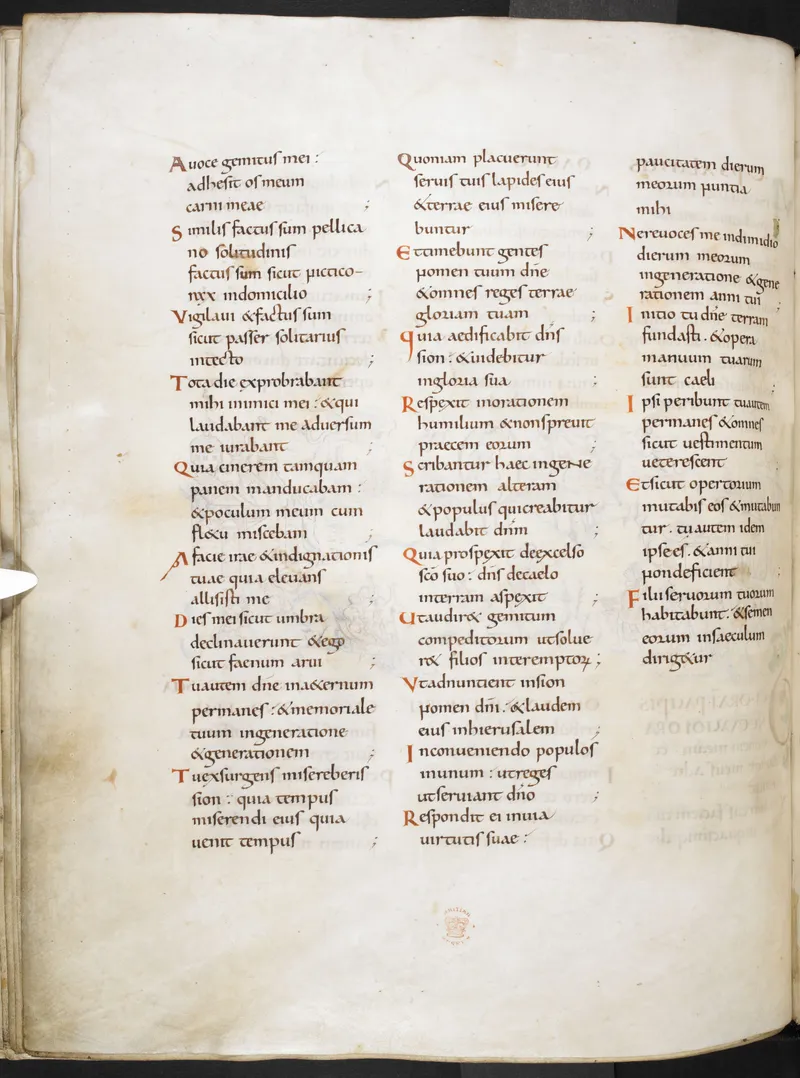 Auoce gemitus mei :
adhesit os meum
carni meae ;
Similis factus sum pellica
no solitudinis
factus sum sicut nictico-
rax indomicilio ;
Vigilaui &factus sum
sicut passer solitarius
intecto ;
Tota die exprobrabant
mihi inimici mei : &qui
laudabant me aduersum
me iurabant ;
Quia cinerem tamquam
panem manducabam :
&poculum meum cum
fl&u miscebam ;
A facie irae &indignationis
tuae quia eleuans
allisisti me ;
Dies mei sicut umbra
declinauerunt &ego
sicut faenum arui ;
Tuautem dne ina&ernum
permanes : &memoriale
tuum ingeneratione
&generationem ;
Tuexsurgens misereberis
sion : quia tempus
miserendi eius quia
uenit tempus ;
Quoniam placuerunt
seruis tuis lapides eius
&terrae eius misere
buntur ;
Ettimebunt gentes
nomen tuum dne
&omnes reges terrae
gloriam tuam ;
quia aedificabit dns
sion : &uidebitur
ingloria sua ;
Respexit inorationem
humilium &nonspreuit
praecem eorum ;
Scribantur haec ingene
rationem alteram
&populus quicreabitur
laudabit dnm ;
Quia prospexit deexcelso
sco suo : dns decaelo
interram aspexit ;
Utaudir& gemitum
compeditorum utsolue
r& filios interemptoꝝ ;
Vtadnuntient insion
nomen dni : &laudem
eius inhierusalem ;
Inconueniendo populos
inunum : utreges
utseruiant dno ;
Respondit ei inuia
uirtutis suae :
paucitatem dierum
meorum nuntia
mihi
Nereuoces me indimidio
dierum meorum
ingeneratione &gene
rationem anni tui ;
Initio tu dne terram
fundasti . &opera
manuum tuarum
sunt caeli ;
Ipsi peribunt tuautem
permanes &omnes
sicut uestimentum
ueterescent ;
Etsicut opertorium
mutabis eos &mutabun
tur . tu autem idem
ipse es . &anni tui
nondeficient ;
Filii seruorum tuorum
habitabunt . &semen
eorum insaeculum
dirig&ur